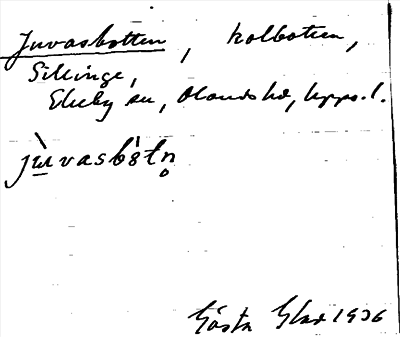 Juvasbotten, kolbotten,
Sillinge,
Ekeby sn, Olands hd, Upps.l.
jùvasbótn̥
Gösta 1936